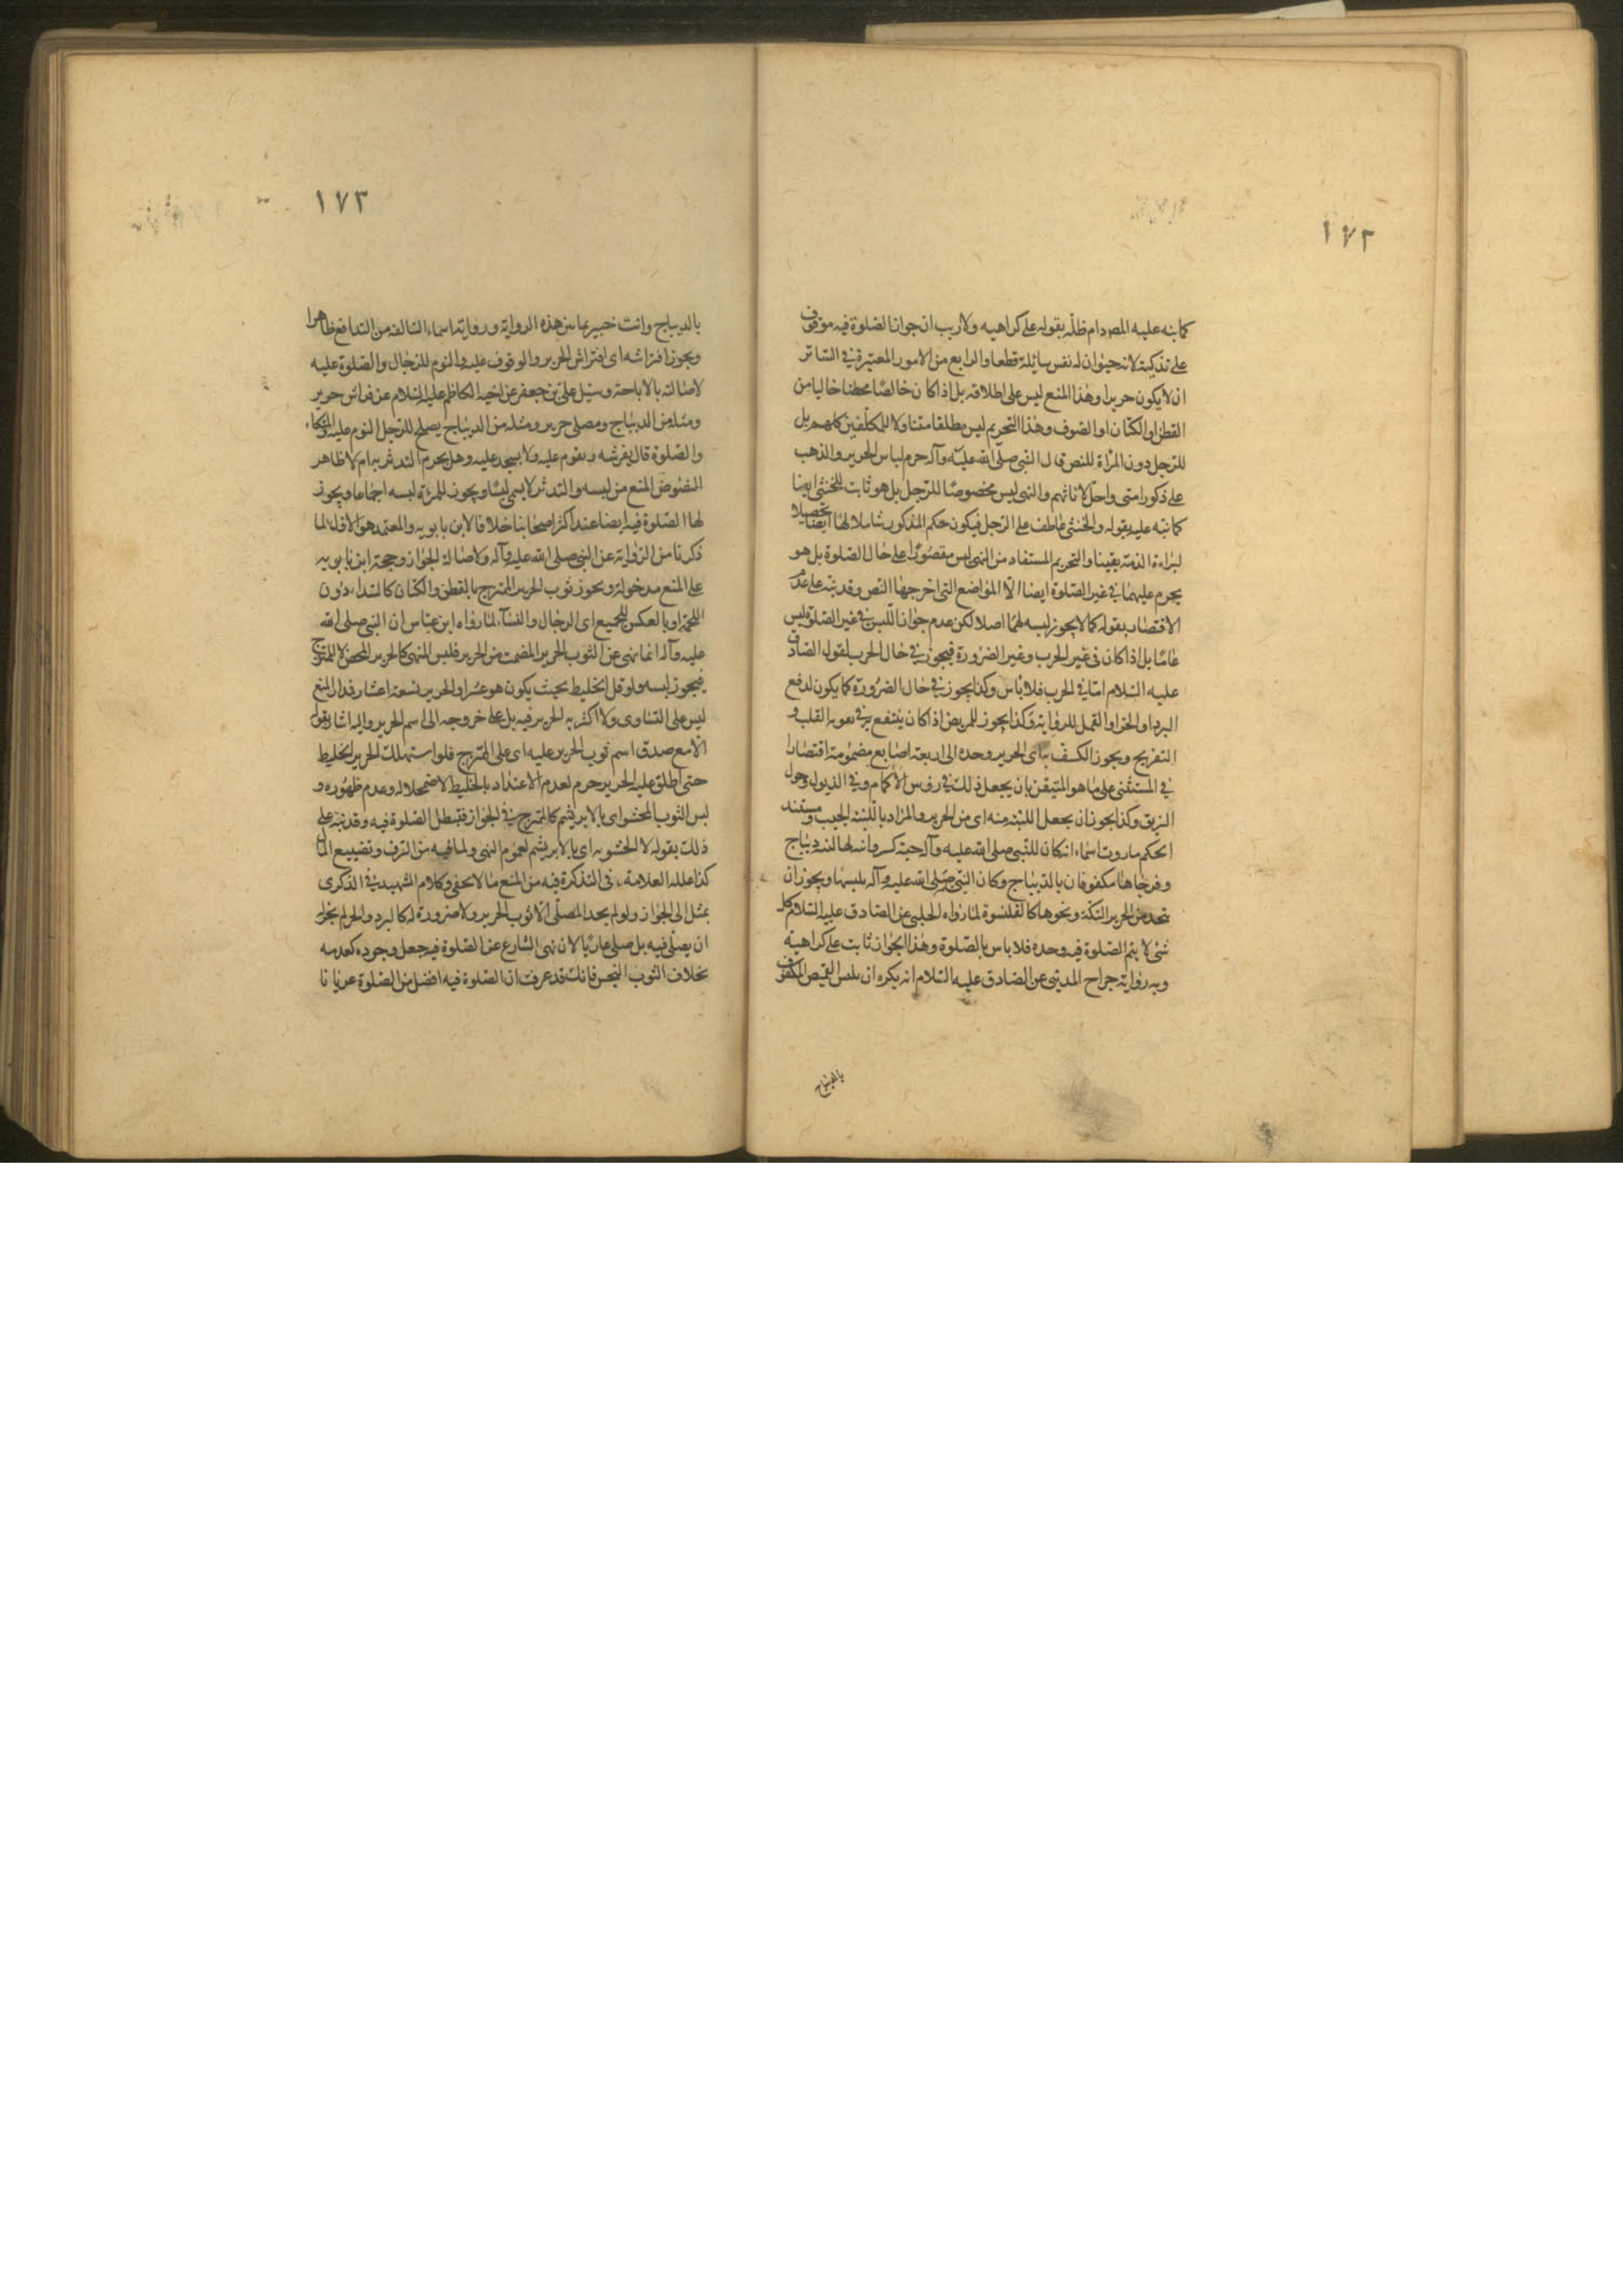 ١٧٢
كما نبه عليه المصر دام ظله بقوله على كراهيه ولا ريب ان جواز الصلوة فيه موقوف
على تذكيته لانه حيوان له نفس سائلة قطعا والرابع من الامور المعتبرة في الساتر
ان لا يكون حريرا وهذا المنع ليس على اطلاقه بل اذا كان خالصا محضا خاليا من
القطن او الكتان او الصوف وهذا التحريم ليس مطلقا متناولا للمكلفين كلهم بل
للرجل دون المراة للنص قال النبي صلى الله عليه وآله حرم لباس الحرير والذهب
على ذكور امتى واحل لاناثهم والنهى ليس مخصوصا للرجل بل هو ثابت للخنثى ايضا
كما نبه عليه بقوله والخنثى عاطف على الرجل فيكون حكم المذكور شاملا لها ايضا تحصيلا
لبراءة الذمة يقينا والتحريم المستفاد من النهى ليس مقصورا على حال الصلوة بل هو
يحرم عليهما في غير الصلوة ايضا الا المواضع التى اخرجها النص وقد نبه على عدم
الاقتصار بقوله كما لا يجوز لبسه لهما اصلا لكن عدم جواز اللبس في غير الصلوة ليس
عاما بل اذا كان في غير الحرب وغير الضرورة فيجوز في حال الحرب لقول الصادق
عليه السلام اما في الحرب فلا باس وكذا يجوز في حال الضرورة كما يكون لدفع
البرد او الحر او القمل للرواية وكذا يجوز للمريض اذا كان ينتفع به في تقوية القلب و
التفريح ويجوز الكف به اى الحرير وحده الى اربعة اصابع مضمومة اقتصارا
في المستثنى على ما هو المتيقن بان يجعل ذلك في رؤس الاكمام وفي الذيول وحول
الزيق وكذا يجوز ان يجعل اللبنة منه اى من الحرير والمراد باللبنة الجيب ومستند
الحكم ما روت اسماء انه كان للنبي صلى الله عليه وآله جبة كسروانية لها لبنة ديباج
وفرجاها مكفوفان بالديباج وكان النبي صلى الله عليه وآله يلبسها ويجوز ان
يتخذ من الحرير التكة ونحوها كالقلنسوة لما رواه الحلبى عن الصادق عليه السلام كل
شئ لا يتم الصلوة فيه وحده فلا باس بالصلوة وهذا الجواز ثابت على كراهية
وبه رواية جراح المدينى عن الصادق عليه السلام انه يكره ان يلبس القميص المكفوف
بالديباج
١٧٣
بالديباج وانت خبير بما بين هذه الرواية ورواية اسماء السالفة من التدافع ظاهرا
ويجوز افتراشه اى افتراش الحرير والوقوف عليه والنوم للرجال والصلوة عليه
لاصالة بالاباحة وسئل على بن جعفر عن اخيه الكاظم عليه السلام عن فراش حرير
ومثله من الديباج ومصلى حرير ومثله من الديباج يصلح للرجل النوم عليه والتكاء
والصلوة قال يفرشه ويقوم عليه ولا يسجد عليه وهل يحرم التدثر به ام لا ظاهر
النصوص المنع من لبسه والتدثر لا يسمى لبسا ويجوز للمرئة لبسه اجماعا ويجوز
لها الصلوة فيه ايضا عند اكثر اصحابنا خلافا لابن بابويه والمعتمد هو الاول لما
ذكرنا من الرواية عن النبي صلى الله عليه وآله ولاصالة الجواز وحجة ابن بابويه
على المنع مدخولة ويجوز ثوب الحرير الممتزج بالقطن والكتان كالسداء دون
اللحمة او بالعكس للجميع اى الرجال والنساء لما رواه ابن عباس ان النبي صلى الله
عليه وآله انما نهى عن الثوب الحرير المصمت من الحرير فلبس المنهى كالحرير المحض لا الممتزج
فيجوز لبسه ولو قل الخليط بحيث يكون هو عشرا والحرير تسعة اعشار فمدار المنع
ليس على التساوى ولا اكثرية الحرير فيه بل على خروجه الى اسم الحرير واليه اشار بقوله
الا مع صدق اسم ثوب الحرير عليه اى على الممتزج فلو استهلك الحرير الخليط
حتى اطلق عليه الحرير حرم لعدم الاعتداد بالخليط لاضمحلاله وعدم ظهوره و
لبس الثوب المحشو اى بالابريشم كالممتزج في الجواز فتبطل الصلوة فيه وقد نبه على
ذلك بقوله لا الحشو به اى بالابريشم لعموم النهى ولما فيه من الترف وتضييع المال
كذا علله العلامة في التذكرة فيه من المنع ما لا يخفى وكلام الشهيد في الذكرى
يمثل الى الجواز ولو لم يجد المصلى الا ثوب الحرير ولا ضرورة له كالبرد والحر لم يجز له
ان يصلى فيه بل صلى عاريا لان نهى الشارع عن الصلوة فيه جعل وجوده كعدمه
بخلاف الثوب النجس فانك قد عرفت ان الصلوة فيه افضل من الصلوة عريانا